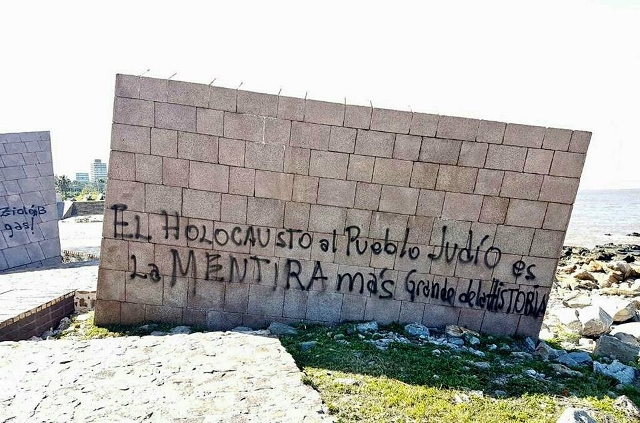 EL HOLOCAUSTO al Pueblo Judío es
La MENTIRA más Grande de la HISTORIA
gas!